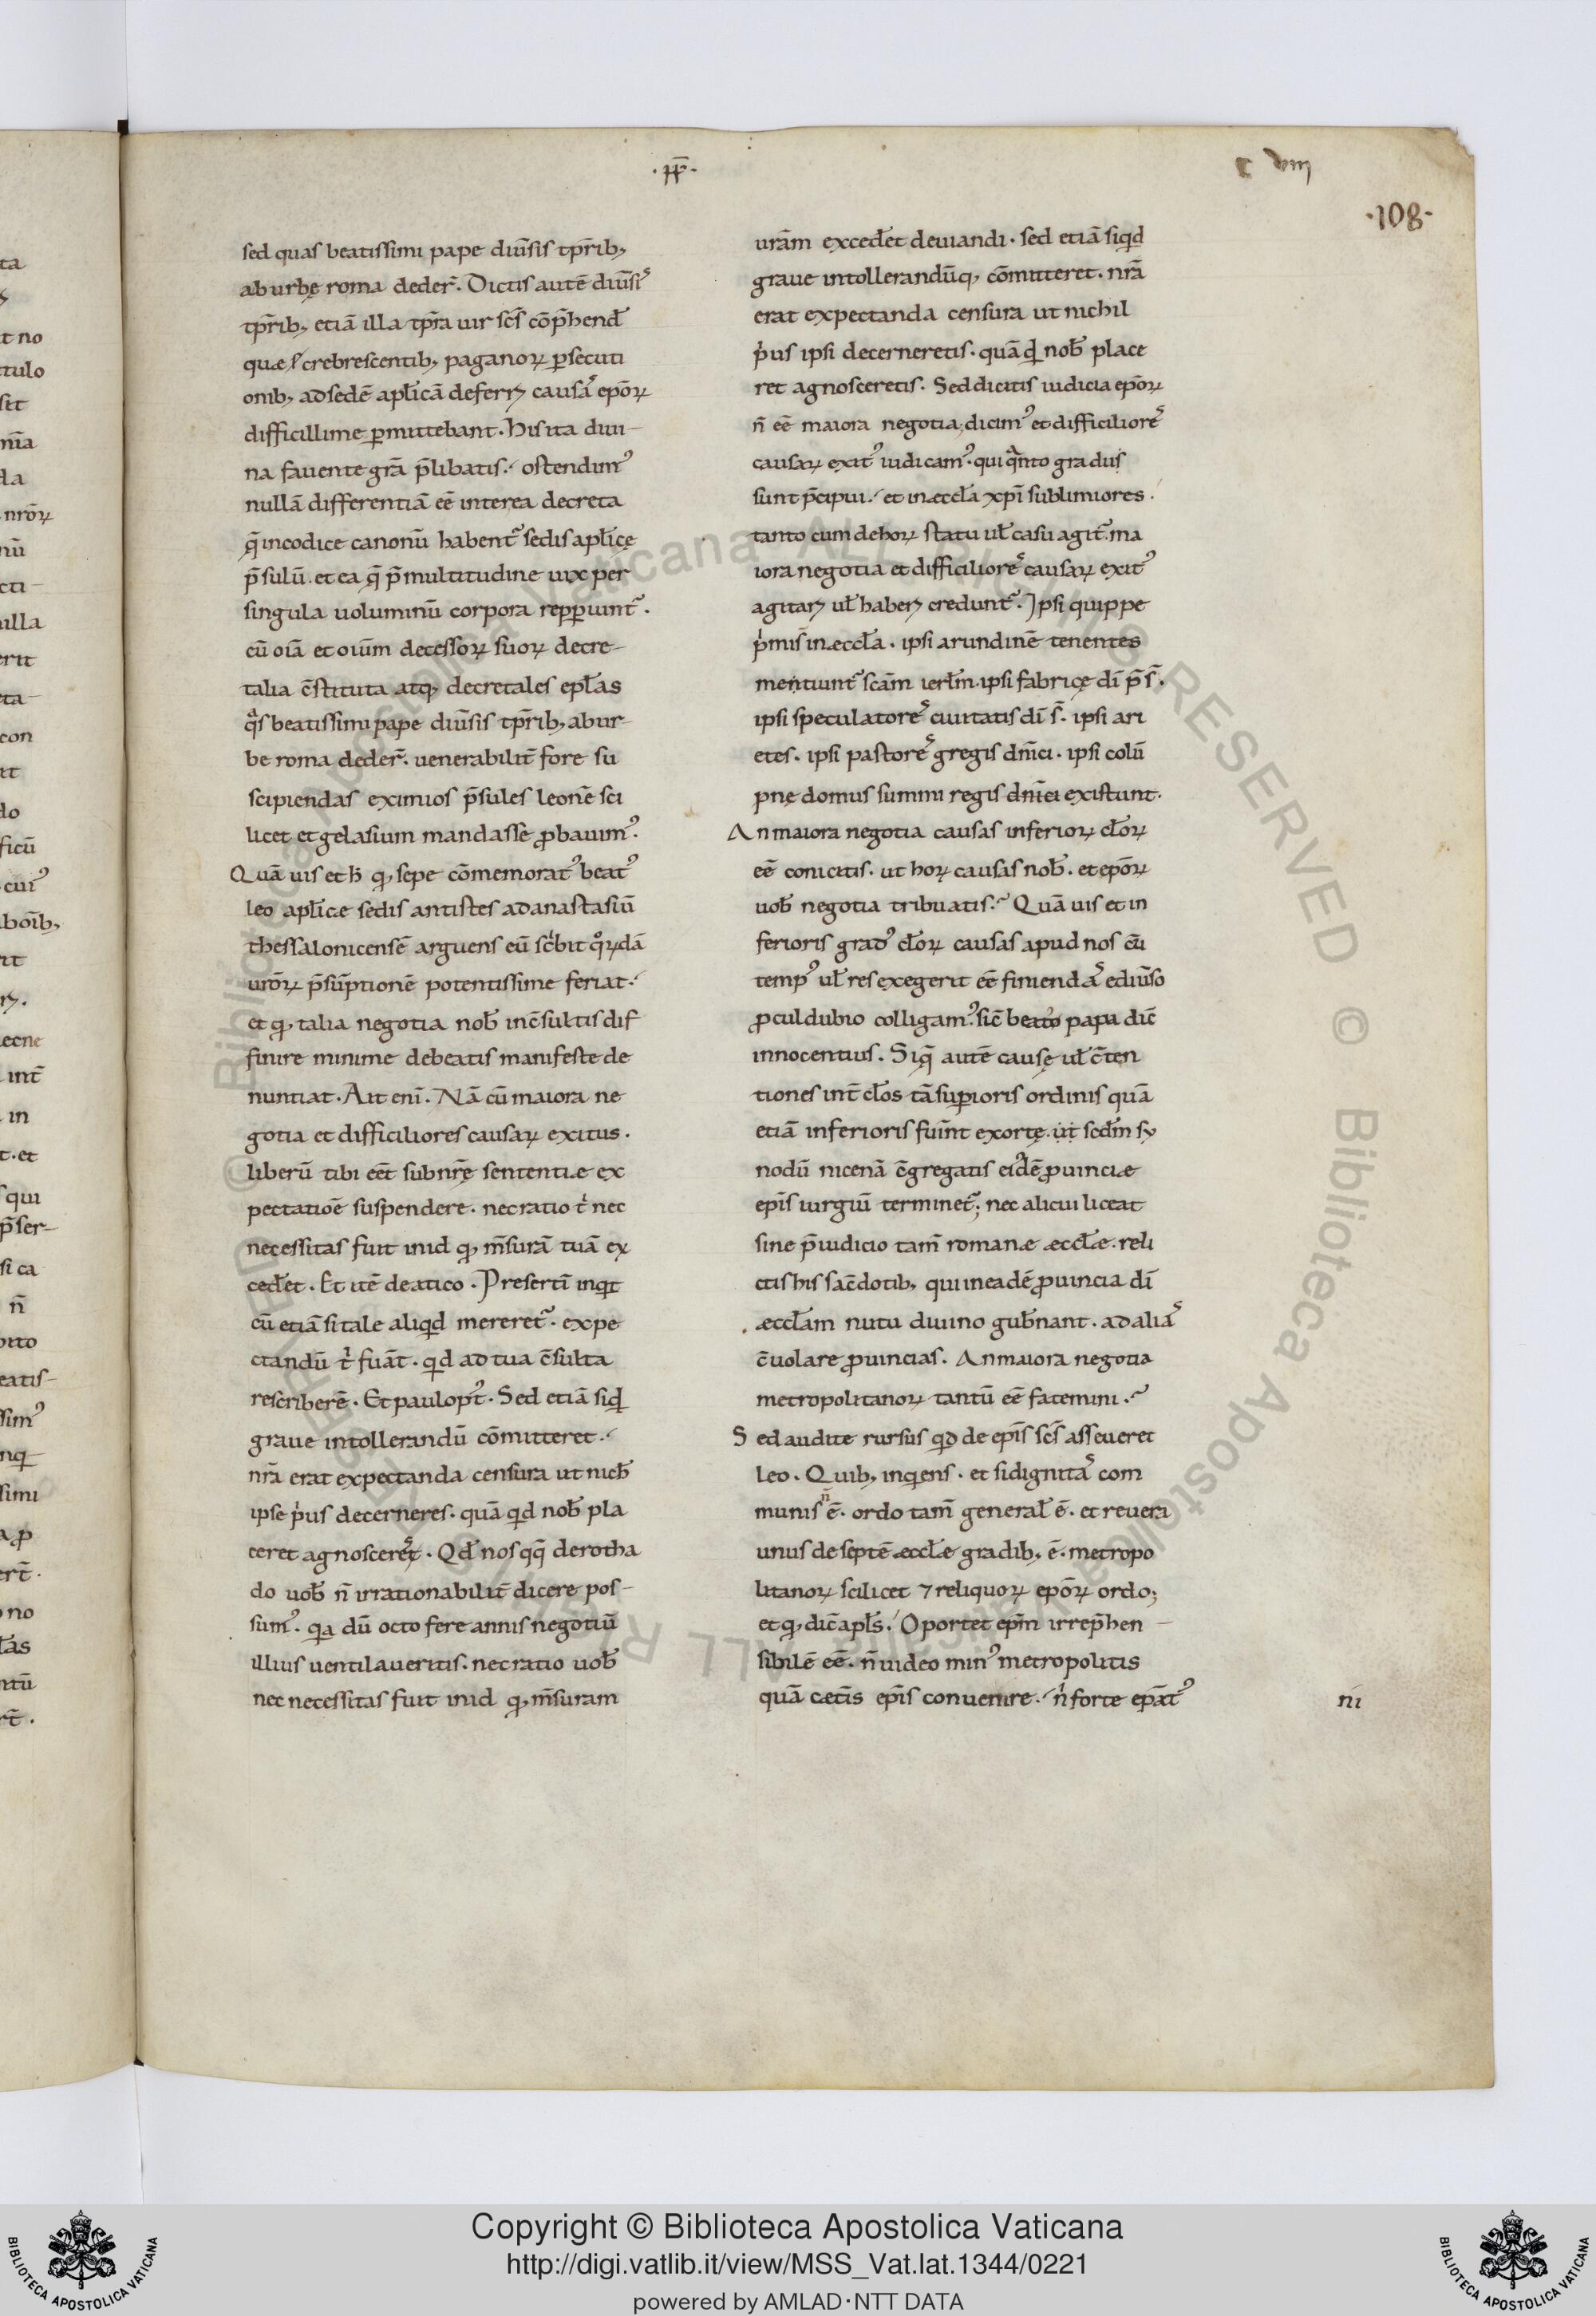 ·PP·
c viii
·108·
sed quas beatissimi pape diu̅sis tp̅rib;
ab urbę roma deder̅. Dictis aute̅ diu̅sis
tp̅rib; etia̅ illa tp̅ra uir sc̅s co̅p̅hend̅
quae crebrescentib; paganoꝝ ꝑsecuti
onib; ad sede̅ apl̅ica̅ deferr; causas epo̅ꝝ
difficillime ꝑmittebant. His ita diui-
na fauente gr̅a p̅libatis. ostendim᷒
nulla̅ differentia̅ ee̅ inter ea decreta
q̅ in codice canonu̅ habent᷑ sedis apl̅icę
p̅sulu̅. et ea q̅ p̅ multitudine uix per
singula uoluminu̅ corpora repꝑiunt᷑.
cu̅ oi̅a et oiu̅m decessoꝝ suoꝝ decre-
talia c̅stituta atq; decretales epl̅as
qͣs beatissimi pape diu̅sis tp̅rib; ab ur-
be roma deder̅. uenerabilit̅ fore su
scipiendas eximios p̅sules leone̅ sci
licet et gelasium mandasse ꝓbauim᷒.
Qua̅ uis et h̅ q; sepe co̅memorat᷒ beat᷒
leo apl̅icae sedis antistes ad anastasiu̅
thessalonicense̅ arguens eu̅ scͥbit qͦꝝda̅
uro̅ꝝ p̅su̅ptione̅ potentissime feriat.
et q; talia negotia nob̅ inc̅sultis dif
finire minime debeatis manifeste de
nuntiat. Ait eni̅. Na̅ cu̅ maiora ne
gotia et difficiliores causaꝝ exitus.
liberu̅ tibi ee̅t sub nr̅ę sententiae ex
pectatio̅e suspendere. nec ratio tͥ nec
necessitas fuit in id q; m̅sura̅ tua̅ ex
ced̅et. Et ite̅ de atico. Preserti̅ inqͥt
cu̅ etia̅ si tale aliqͥd mereret᷑. expe
ctandu̅ tͥ fua̅t. qͥd ad tua c̅sulta
rescribere̅. Et paulo pt᷒. Sed etia̅ siqͥd
graue intollerandu̅ co̅mitteret.
nr̅a erat expectanda censura ut nich̅
ipse pͥus decerneres. qua̅ qͥd nob̅ pla
ceret agnosceret. Qd̅ nos qq̅ de rotha
do uob̅ n̅ irrationabilit̅ dicere pos-
sum᷒. qͥa du̅ octo fere annis negotiu̅
illius uentilaueritis. nec ratio uob̅
nec necessitas fuit in id q; m̅suram
ura̅m exced̅et deuiandi. sed etia̅ siqͥd
graue intollerandu̅q; co̅mitteret. nr̅a
erat expectanda censura ut nichil
pͥus ipsi decerneretis. qua̅ qͥd nob̅ place
ret agnosceretis. Sed dicitis iudicia epo̅ꝝ
n̅ ee̅ maiora negotia; dicim᷒ et difficiliores
causaꝝ exit᷒ iudicam᷒. qui qͣnto gradus
sunt p̅cipui. et in aeccl̅a xp̅i sublimiores.
tanto cum de hoꝝ statu ul̅ casu agit᷑. ma
iora negotia et difficiliores causaꝝ exit᷒
agitar; ul̅ haber; credunt᷑. Ipsi quippe
pͥmi s̅ in aeccl̅a. ipsi arundine̅ tenentes
mentiunt᷑ sca̅m ierl̅m. ipsi fabricę di̅ p̅ s̅.
ipsi speculatores ciuitatis di̅ s̅. ipsi ari
etes. ipsi pastores gregis dn̅ici. ipsi colu̅
pnę domus summi regis dn̅ici existunt.
An maiora negotia causas inferioꝝ cl̅oꝝ
ee̅ conicitis. ut hoꝝ causas nob̅. et epo̅ꝝ
uob̅ negotia tribuatis. Qua̅ uis et in
ferioris grad᷒ cl̅oꝝ causas apud nos cu̅
temp᷒ ul̅ res exegerit ee̅ finiendas ediu̅so
ꝓcul dubio colligam᷒. sic̅ beato papa dic̅
innocentius. Siq̅ aute̅ causę ul̅ c̅ten
tiones int̅ cl̅os ta̅ suꝑioris ordinis qua̅
etia̅ inferioris fui̅nt exortę. ut sed̅m sy
nodu̅ nicena̅ c̅gregatis eide̅ ꝓuinciae
epi̅s iurgiu̅ terminet᷑; nec alicui liceat
sine p̅iudicio tam̅ romanae aeccl̅ae. reli
ctis his sac̅dotib; qui in eade̅ ꝓuincia di̅
aeccl̅am nutu diuino gub̅nant. ad alias
c̅uolare ꝓuincias. An maiora negotia
metropolitanoꝝ tantu̅ ee̅ fatemini.
Sed audite rursus qͥd de epi̅s sc̅s asseueret
leo. Quib; inqͥens. et si dignitas com
munis n̅ e̅. ordo tam̅ general̅ e̅. et reuera
unus de septe̅ aeccl̅ae gradib; e̅. metropo
litanoꝝ scilicet ⁊ reliquoꝝ epo̅ꝝ ordo;
et q; dic̅ apl̅s. Oportet epm̅ irrep̅hen
sibile̅ ee̅. n̅ uideo min᷒ metropolitis
qua̅ caet̅is epi̅s conuenire. nͥ forte epa̅t᷒
ni
Copyright © Biblioteca Apostolica Vaticana
http://digi.vatlib.it/view/MSS_Vat.lat.1344/0221
powered by AMLAD·NTT DATA